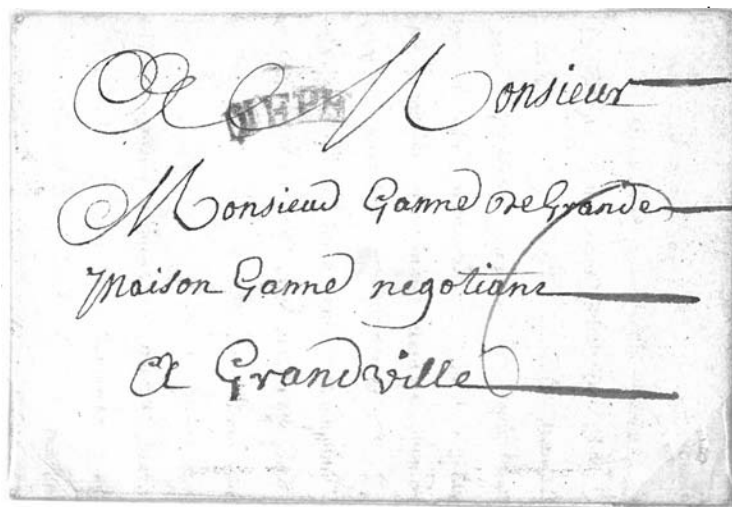 A Monsieur
DIEPE
Monsieur Ganne de Grande
maison Ganne negotiant
A Grandville